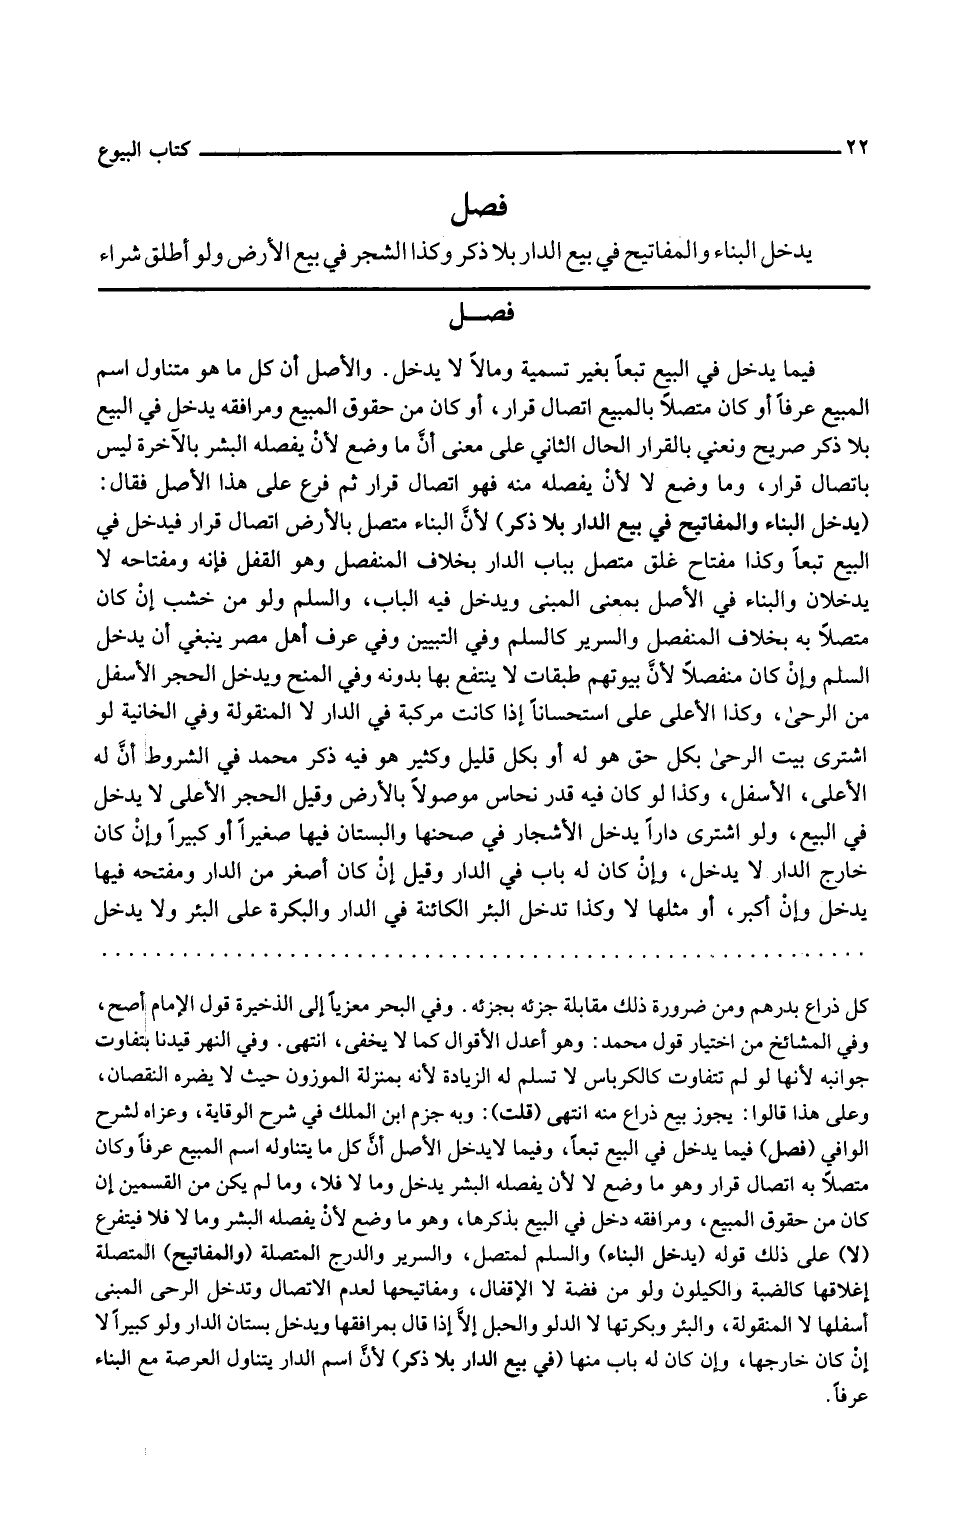 ٢٢ كتاب البيوع
فصل
يدخل البناء والمفاتيح في بيع الدار بلا ذكر وكذا الشجر في بيع الأرض ولو أطلق شراء
فصل
فيما يدخل في البيع تبعاً بغير تسمية ومالاً لا يدخل. والأصل أن كل ما هو متناول اسم
المبيع عرفاً أو كان متصلاً بالمبيع اتصال قرار، أو كان من حقوق المبيع ومرافقه يدخل في البيع
بلا ذكر صريح ونعني بالقرار الحال الثاني على معنى أنَّ ما وضع لأنْ يفصله البشر بالآخرة ليس
باتصال قرار، وما وضع لا لأنْ يفصله منه فهو اتصال قرار ثم فرع على هذا الأصل فقال:
(يدخل البناء والمفاتيح في بيع الدار بلا ذكر) لأنَّ البناء متصل بالأرض اتصال قرار فيدخل في
البيع تبعاً وكذا مفتاح غلق متصل بباب الدار بخلاف المنفصل وهو القفل فإنه ومفتاحه لا
يدخلان والبناء في الأصل بمعنى المبنى ويدخل فيه الباب، والسلم ولو من خشب إنْ كان
متصلاً به بخلاف المنفصل والسرير كالسلم وفي التبيين وفي عرف أهل مصر ينبغي أن يدخل
السلم وإنْ كان منفصلاً لأنَّ بيوتهم طبقات لا ينتفع بها بدونه وفي المنح ويدخل الحجر الأسفل
من الرحىٰ، وكذا الأعلى على استحساناً إذا كانت مركبة في الدار لا المنقولة وفي الخانية لو
اشترى بيت الرحىٰ بكل حق هو له أو بكل قليل وكثير هو فيه ذكر محمد في الشروط أنَّ له
الأعلى، الأسفل، وكذا لو كان فيه قدر نحاس موصولاً بالأرض وقيل الحجر الأعلى لا يدخل
في البيع، ولو اشترى داراً يدخل الأشجار في صحنها والبستان فيها صغيراً أو كبيراً وإنْ كان
خارج الدار لا يدخل، وإنْ كان له باب في الدار وقيل إنْ كان أصغر من الدار ومفتحه فيها
يدخل وإنْ أكبر، أو مثلها لا وكذا تدخل البئر الكائنة في الدار والبكرة على البئر ولا يدخل
كل ذراع بدرهم ومن ضرورة ذلك مقابلة جزئه بجزئه. وفي البحر معزياً إلى الذخيرة قول الإمام أصح،
وفي المشائخ من اختيار قول محمد: وهو أعدل الأقوال كما لا يخفى، انتهى. وفي النهر قيدنا بتفاوت
جوانبه لأنها لو لم تتفاوت كالكرباس لا تسلم له الزيادة لأنه بمنزلة الموزون حيث لا يضره النقصان،
وعلى هذا قالوا: يجوز بيع ذراع منه انتهى (قلت): وبه جزم ابن الملك في شرح الوقاية، وعزاه لشرح
الوافي (فصل) فيما يدخل في البيع تبعاً، وفيما لايدخل الأصل أنَّ كل ما يتناوله اسم المبيع عرفاً وكان
متصلاً به اتصال قرار وهو ما وضع لا لأن يفصله البشر يدخل وما لا فلا، وما لم يكن من القسمين إن
كان من حقوق المبيع، ومرافقه دخل في البيع بذكرها، وهو ما وضع لأنْ يفصله البشر وما لا فلا فيتفرع
(لا) على ذلك قوله (يدخل البناء) والسلم لمتصل، والسرير والدرج المتصلة (والمفاتيح) المتصلة
إغلاقها كالضبة والكيلون ولو من فضة لا الإقفال، ومفاتيحها لعدم الاتصال وتدخل الرحى المبنى
أسفلها لا المنقولة، والبئر وبكرتها لا الدلو والحبل إلاَّ إذا قال بمرافقها ويدخل بستان الدار ولو كبيراً لا
إنْ كان خارجها، وإن كان له باب منها (في بيع الدار بلا ذكر) لأنَّ اسم الدار يتناول العرصة مع البناء
عرفاً.